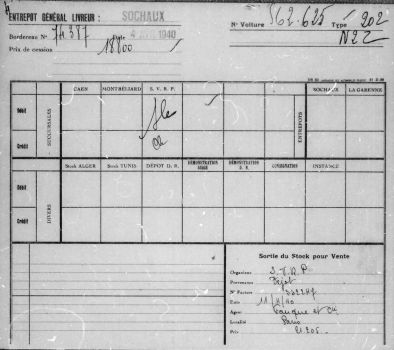 ENTREPOT GÉNÉRAL LIVREUR : SOCHAUX
N° Voiture 562.625 Type 202
Bordereau N° 74387 Date 4 1940
N2Z
Prix de cession 18800
CAEN MONTBÉLIARD S. V. R. P. SOCHAUX LA GARENNE
Débit
Crédit
SUCCURSALES
ENTREPOTS
Stock ALGER Stock TUNIS DÉPOT D. R. DÉMONSTRATION DÉMONSTRATION D. R. CONSIGNATION INSTANCE
Débit
Crédit
DIVERS
Sortie du Stock pour Vente
Organisme S.V.R.P.
Provenance Dépôt
N° Facture
Date 11/4/40
Agent et Cie
Localité Paris
Prix 21.205.